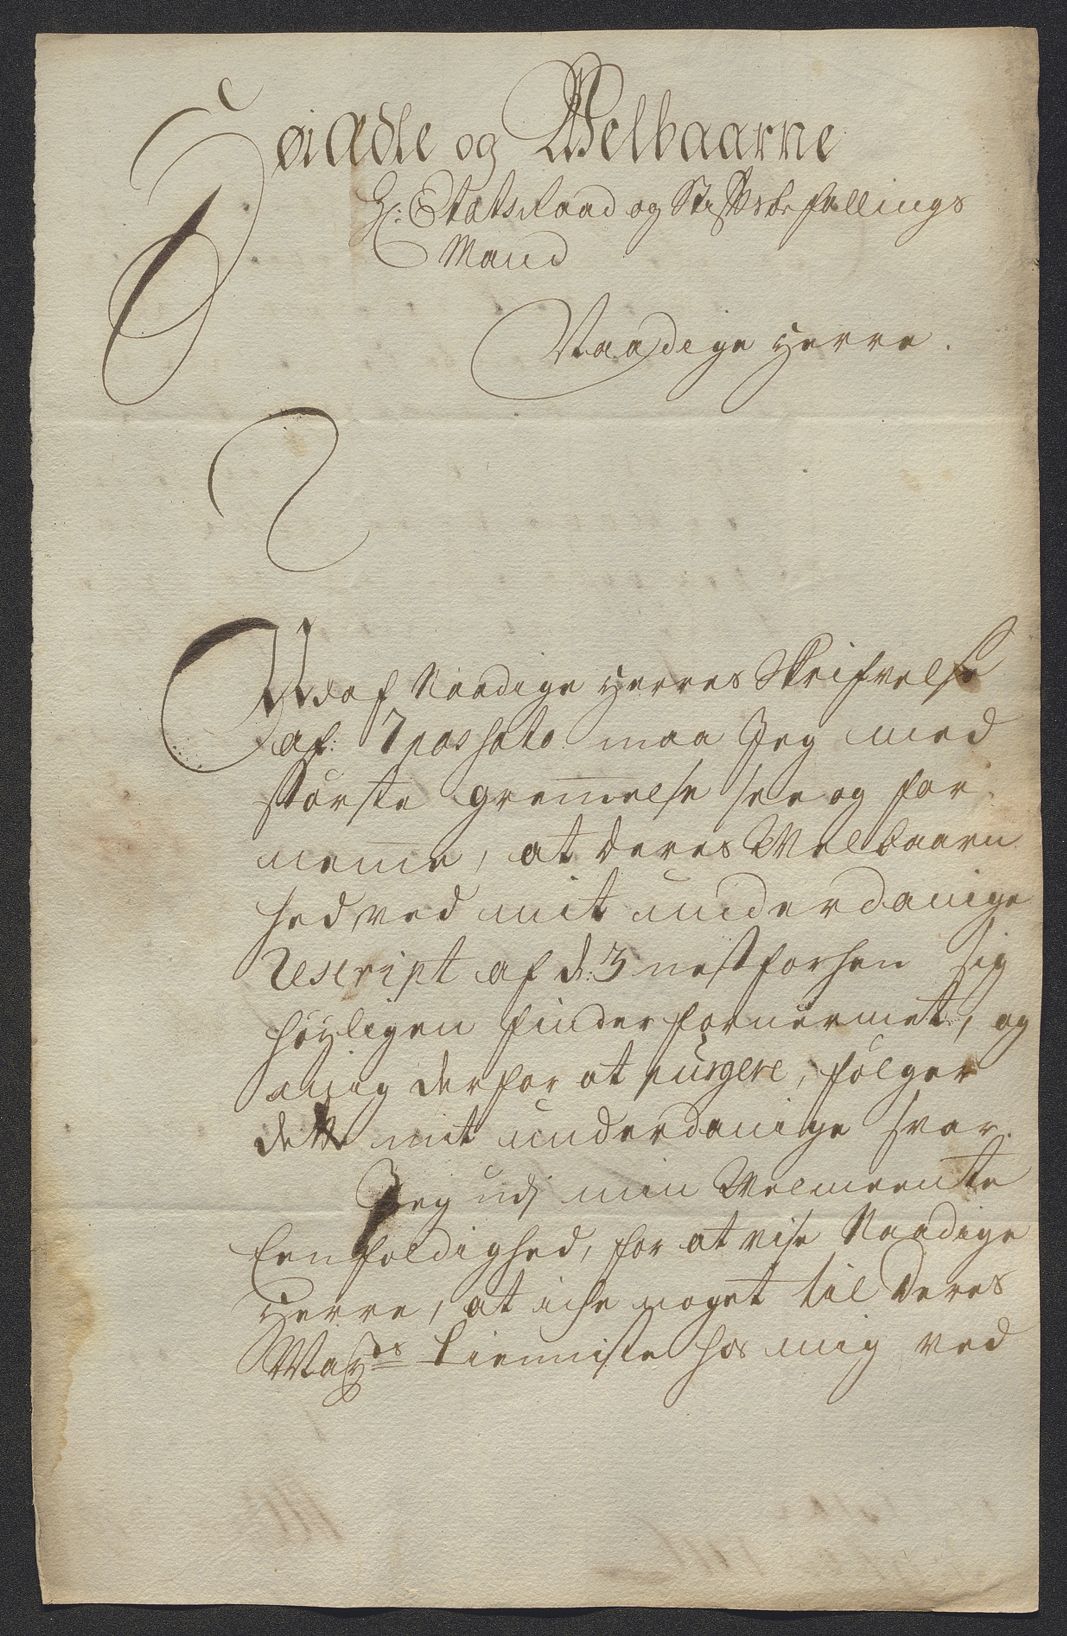 HøiÆdle og Welbaarne
Hr: EtatsRaad og Stiftsbefallings
Mand
Naadige Herre.
Udaf Naadige Herres Skrifvelse
af: 7 passato maa Jeg med
største gremmelse see og for
nemme, at deres Welbaarn
hed, ved mit underdanige
Rescript af d: 3 nestforhen sig
høyligen finder fornermet, og
mig derfor at purgere, følger
dette mit underdanige svar.
Jeg udj min Welmeente
Eenfoldighed, for at vise Naadige
Herre, at icke noget til Deres
May:ts Tienniste hos mig ved